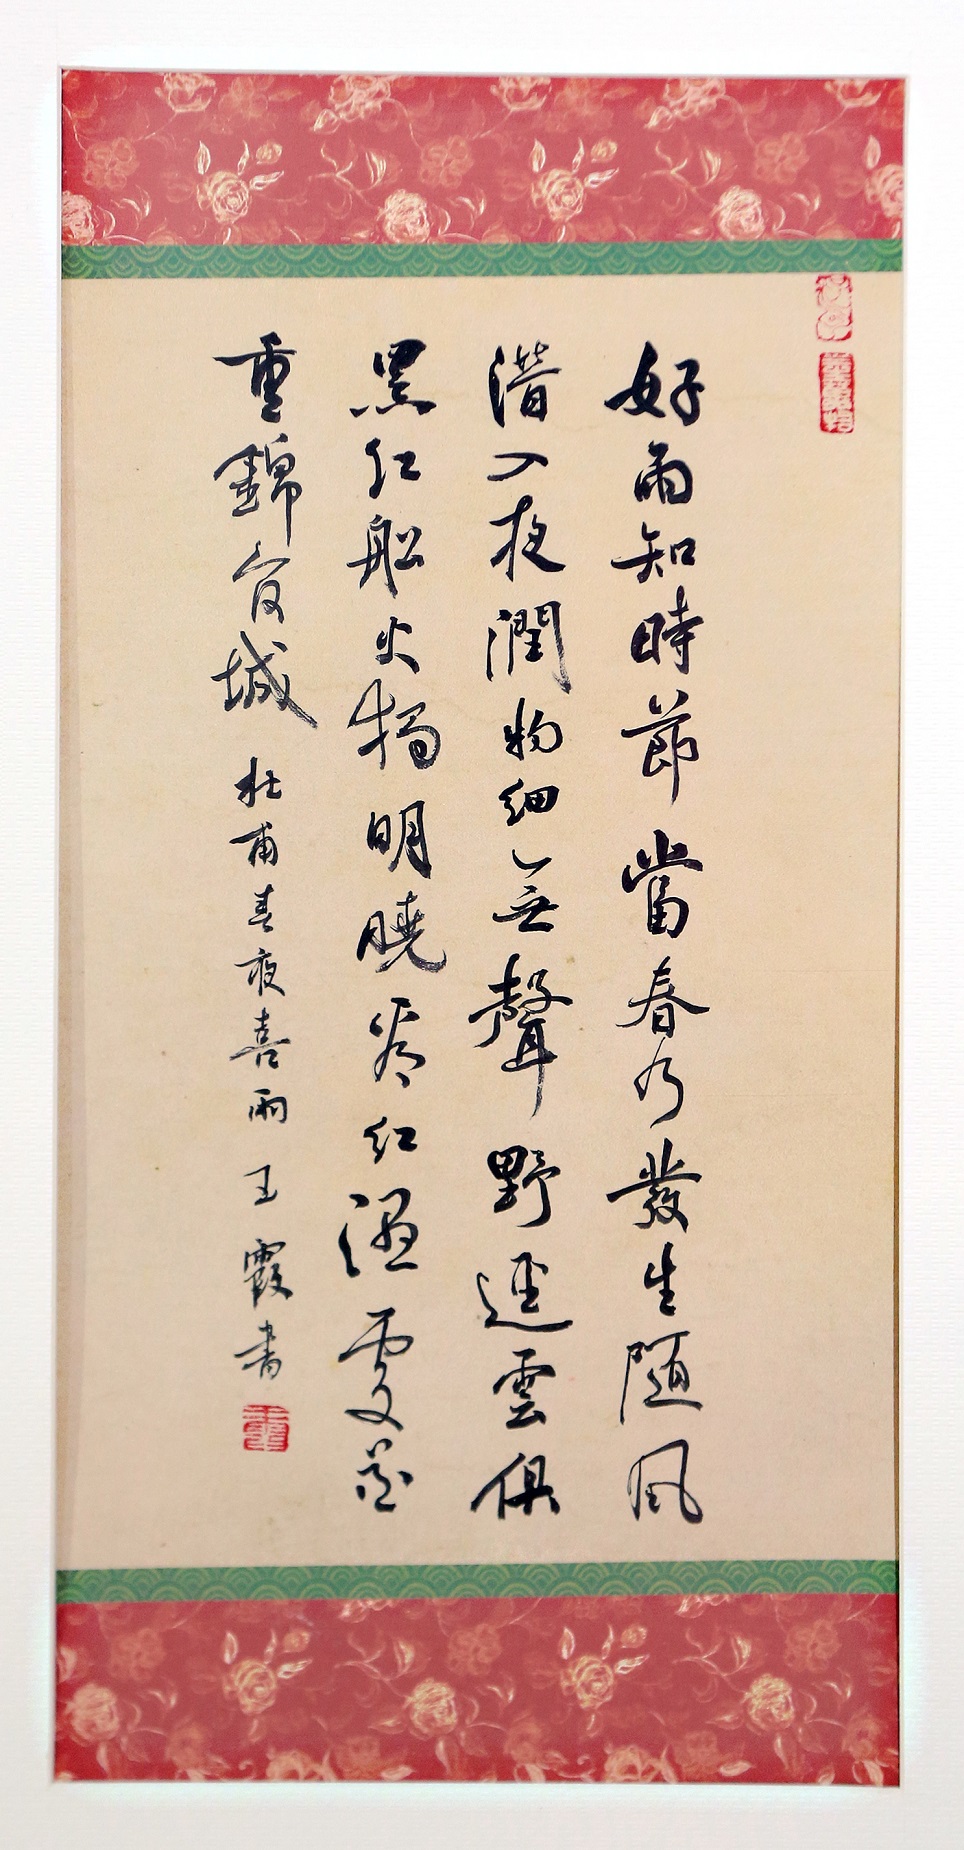 好雨知時節當春乃發生隨風
潜入夜潤物細無聲野逕雲俱
黑江船火獨明曉看紅濕處花
重錦官城 杜甫春夜喜雨 王霞書